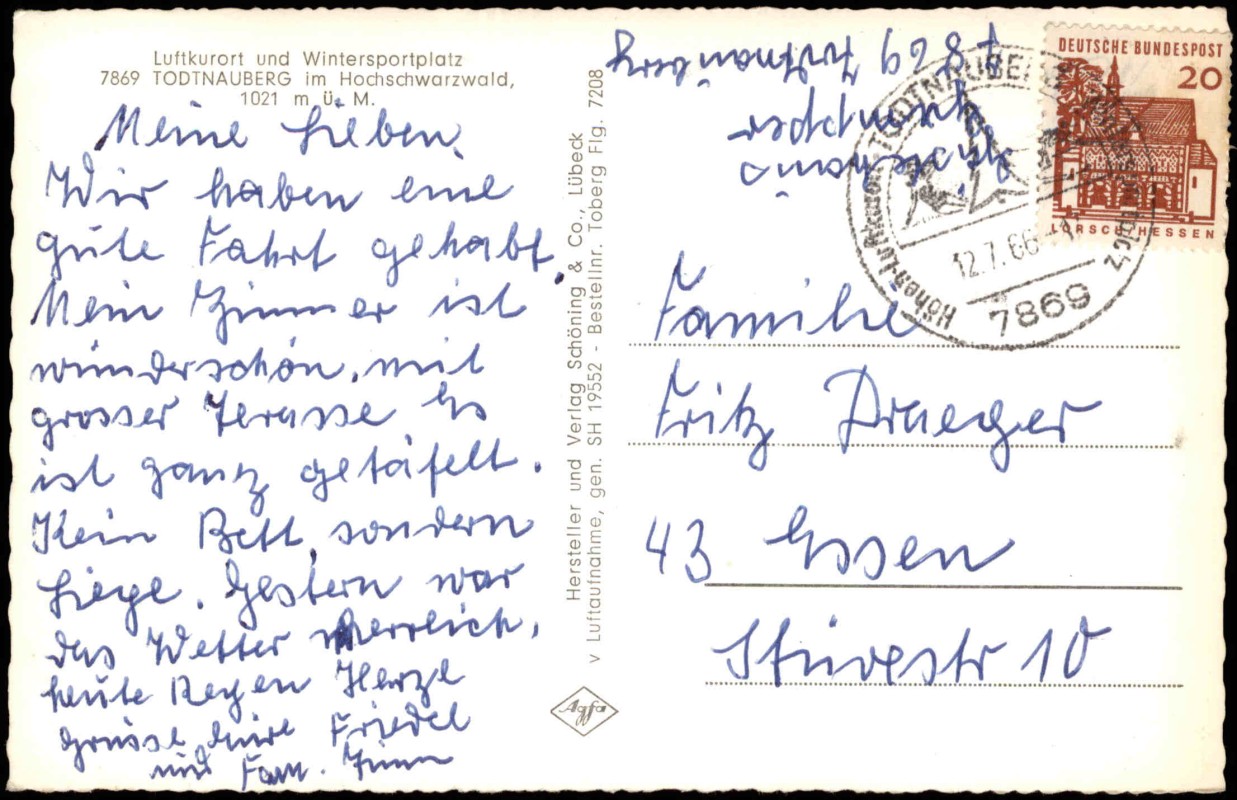 Luftkurort und Wintersportplatz
7869 TODTNAUBERG im Hochschwarzwald,
1021 m ü. M.
Meine Lieben.
Wir haben eine
gute Fahrt gehabt.
Mein Zimmer ist
wunderschön, mit
grosser Terasse Es
ist ganz getäfelt.
Kein Bett, sondern
Liege. Gestern war
das Wetter herrlich,
heute Regen Herzl
Grüsse Eure Friedel
und Fam. Zinn
Hersteller und Verlag Schöning & Co., Lübeck
v Luftaufnahme, gen. SH 19552 - Bestellnr. Toberg Flg. 7208
Agfa
7869 Todtnauberg
Gästehaus
DEUTSCHE BUNDESPOST
20
LORSCH/HESSEN
TODTNAUBERG
Höhen-Luftkurort
12.7.66
7869
Familie
Fritz Draeger
43 Essen
Stüvestr 10